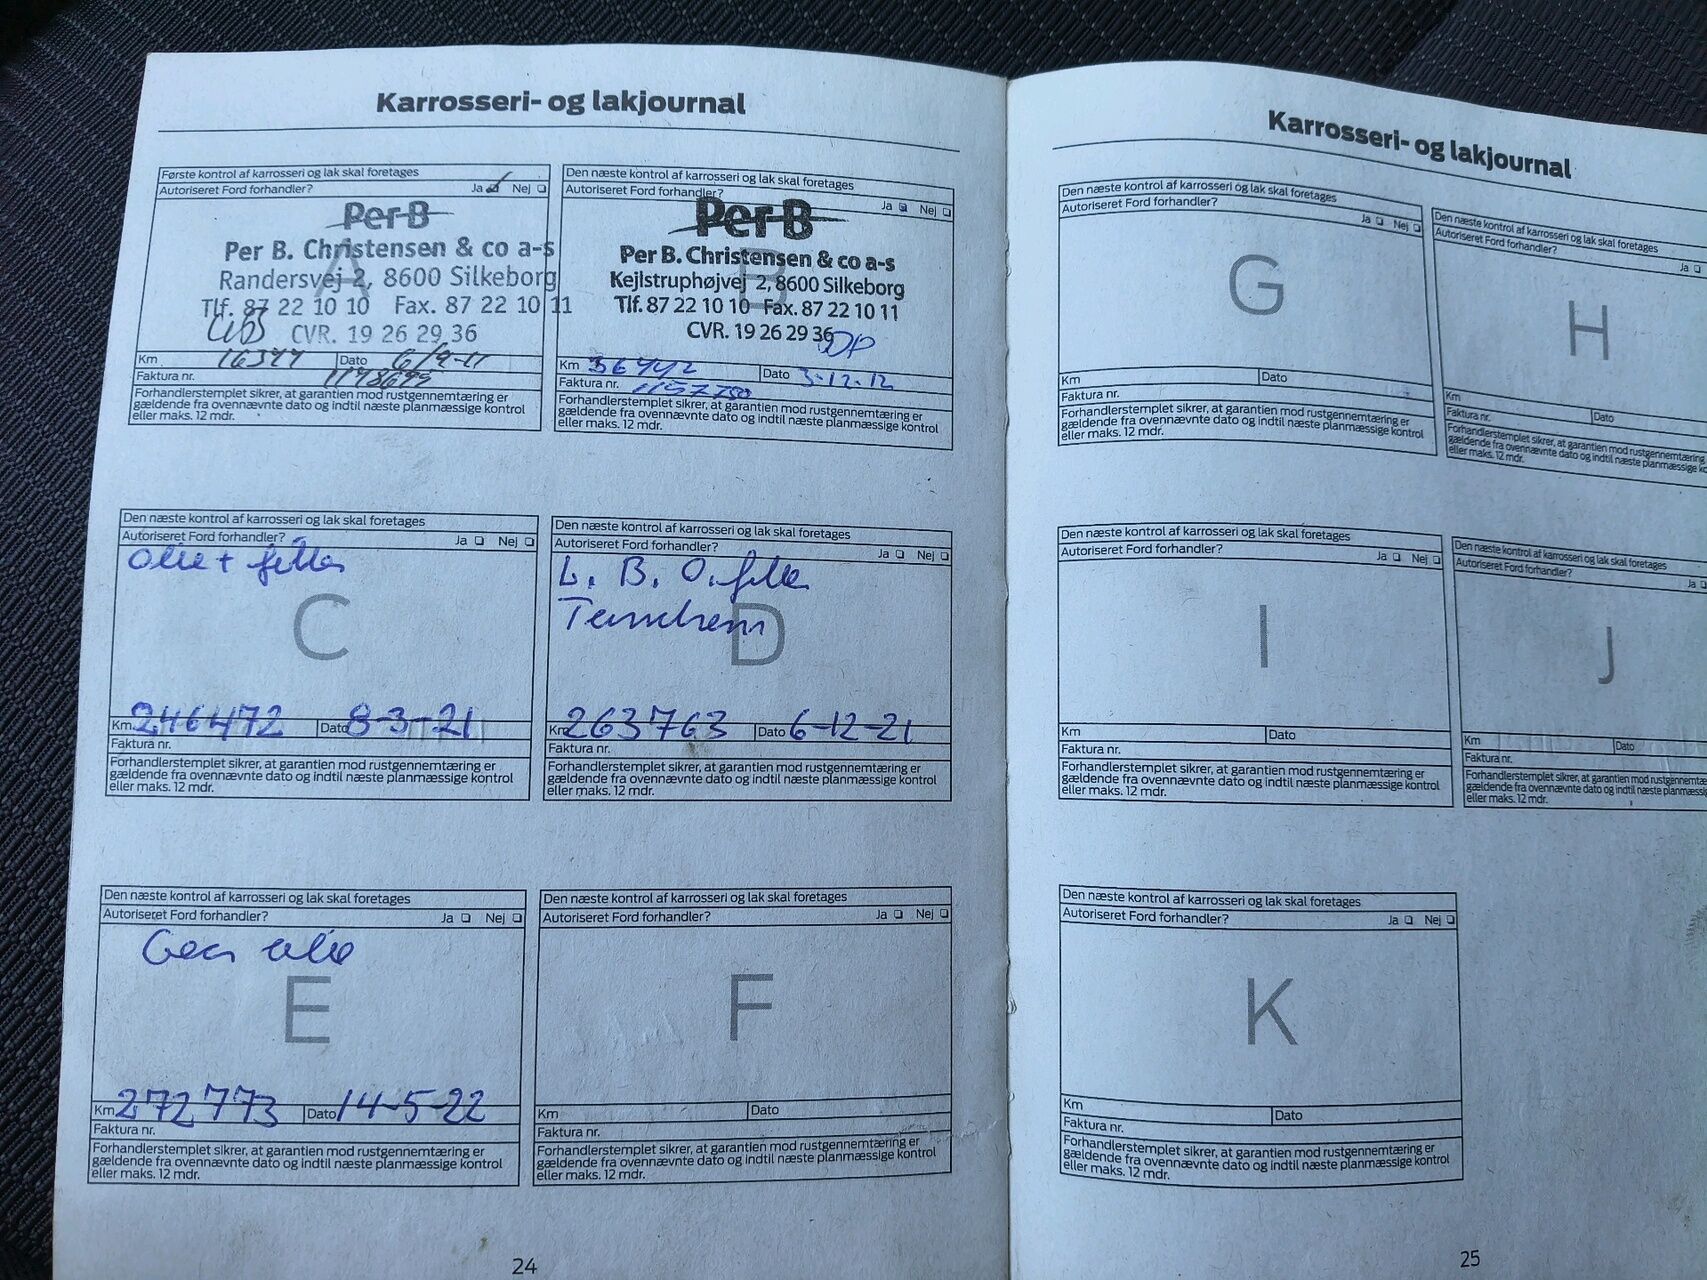 Karrosseri- og lakjournal
Første kontrol af karrosseri og lak skal foretages
Autoriseret Ford forhandler? Ja Nej
Per B
Per B. Christensen & co a-s
Randersvej 2, 8600 Silkeborg
Tlf. 87 22 10 10 Fax. 87 22 10 11
CVR. 19 26 29 36
A
Km 16377 Dato 6/9-11
Faktura nr.
Forhandlerstemplet sikrer, at garantien mod rustgennemtæring er
gældende fra ovennævnte dato og indtil næste planmæssige kontrol
eller maks. 12 mdr.
Den næste kontrol af karrosseri og lak skal foretages
Autoriseret Ford forhandler? Ja Nej
Per B
Per B. Christensen & co a-s
Kejlstruphøjvej 2, 8600 Silkeborg
Tlf. 87 22 10 10 Fax. 87 22 10 11
CVR. 19 26 29 36
DP
B
Km 36442 Dato 3-12-12
Faktura nr. 1157750
Forhandlerstemplet sikrer, at garantien mod rustgennemtæring er
gældende fra ovennævnte dato og indtil næste planmæssige kontrol
eller maks. 12 mdr.
Den næste kontrol af karrosseri og lak skal foretages
Autoriseret Ford forhandler? Ja Nej
Olie + filter
C
Km 246472 Dato 8-3-21
Faktura nr.
Forhandlerstemplet sikrer, at garantien mod rustgennemtæring er
gældende fra ovennævnte dato og indtil næste planmæssige kontrol
eller maks. 12 mdr.
Den næste kontrol af karrosseri og lak skal foretages
Autoriseret Ford forhandler? Ja Nej
L. B. O. filter
Tandrem
D
Km 263763 Dato 6-12-21
Faktura nr.
Forhandlerstemplet sikrer, at garantien mod rustgennemtæring er
gældende fra ovennævnte dato og indtil næste planmæssige kontrol
eller maks. 12 mdr.
Den næste kontrol af karrosseri og lak skal foretages
Autoriseret Ford forhandler? Ja Nej
Gear olie
E
Km 272773 Dato 14-5-22
Faktura nr.
Forhandlerstemplet sikrer, at garantien mod rustgennemtæring er
gældende fra ovennævnte dato og indtil næste planmæssige kontrol
eller maks. 12 mdr.
Den næste kontrol af karrosseri og lak skal foretages
Autoriseret Ford forhandler? Ja Nej
F
Km Dato
Faktura nr.
Forhandlerstemplet sikrer, at garantien mod rustgennemtæring er
gældende fra ovennævnte dato og indtil næste planmæssige kontrol
eller maks. 12 mdr.
24
Karrosseri- og lakjournal
Den næste kontrol af karrosseri og lak skal foretages
Autoriseret Ford forhandler? Ja Nej
G
Km Dato
Faktura nr.
Forhandlerstemplet sikrer, at garantien mod rustgennemtæring er
gældende fra ovennævnte dato og indtil næste planmæssige kontrol
eller maks. 12 mdr.
Den næste kontrol af karrosseri og lak skal foretages
Autoriseret Ford forhandler? Ja
H
Km Dato
Faktura nr.
Forhandlerstemplet sikrer, at garantien mod rustgennemtæring
gældende fra ovennævnte dato og indtil næste planmæssige
eller maks. 12 mdr.
Den næste kontrol af karrosseri og lak skal foretages
Autoriseret Ford forhandler? Ja Nej
I
Km Dato
Faktura nr.
Forhandlerstemplet sikrer, at garantien mod rustgennemtæring er
gældende fra ovennævnte dato og indtil næste planmæssige kontrol
eller maks. 12 mdr.
Den næste kontrol af karrosseri og lak skal foretages
Autoriseret Ford forhandler? Ja
J
Km Dato
Faktura nr.
Forhandlerstemplet sikrer, at garantien mod
gældende fra ovennævnte dato og indtil næste
eller maks. 12 mdr.
Den næste kontrol af karrosseri og lak skal foretages
Autoriseret Ford forhandler? Ja Nej
K
Km Dato
Faktura nr.
Forhandlerstemplet sikrer, at garantien mod rustgennemtæring er
gældende fra ovennævnte dato og indtil næste planmæssige kontrol
eller maks. 12 mdr.
25